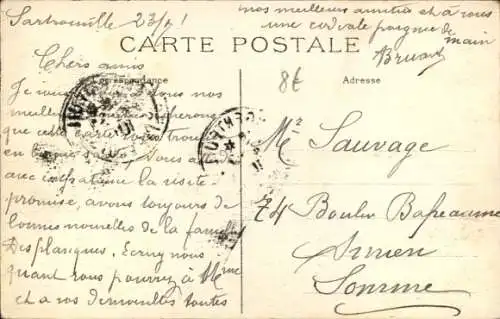 Sartrouville 23/7/
nos meilleurs amitiés et à vous
une cordiale poignée de main
Bruart
CARTE POSTALE
Correspondance
Adresse
8€
Chers amis
Je vous à nos
meilleurs
que cette carte vous trouve
en bonne santé, vous
avec la visite
promise, avons toujours de
bonnes nouvelles de la famille
Desplanques. Ecrivez nous
quant vous pourrez à Mme
et a vos demoiselles toutes
Mr Sauvage
74 Boulev Bapeaume
Amien
Somme